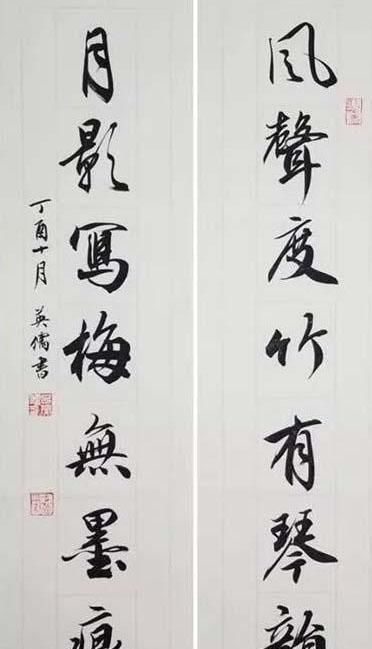 風聲度竹有琴韻
月影寫梅無墨痕
丁酉十月 英儒書